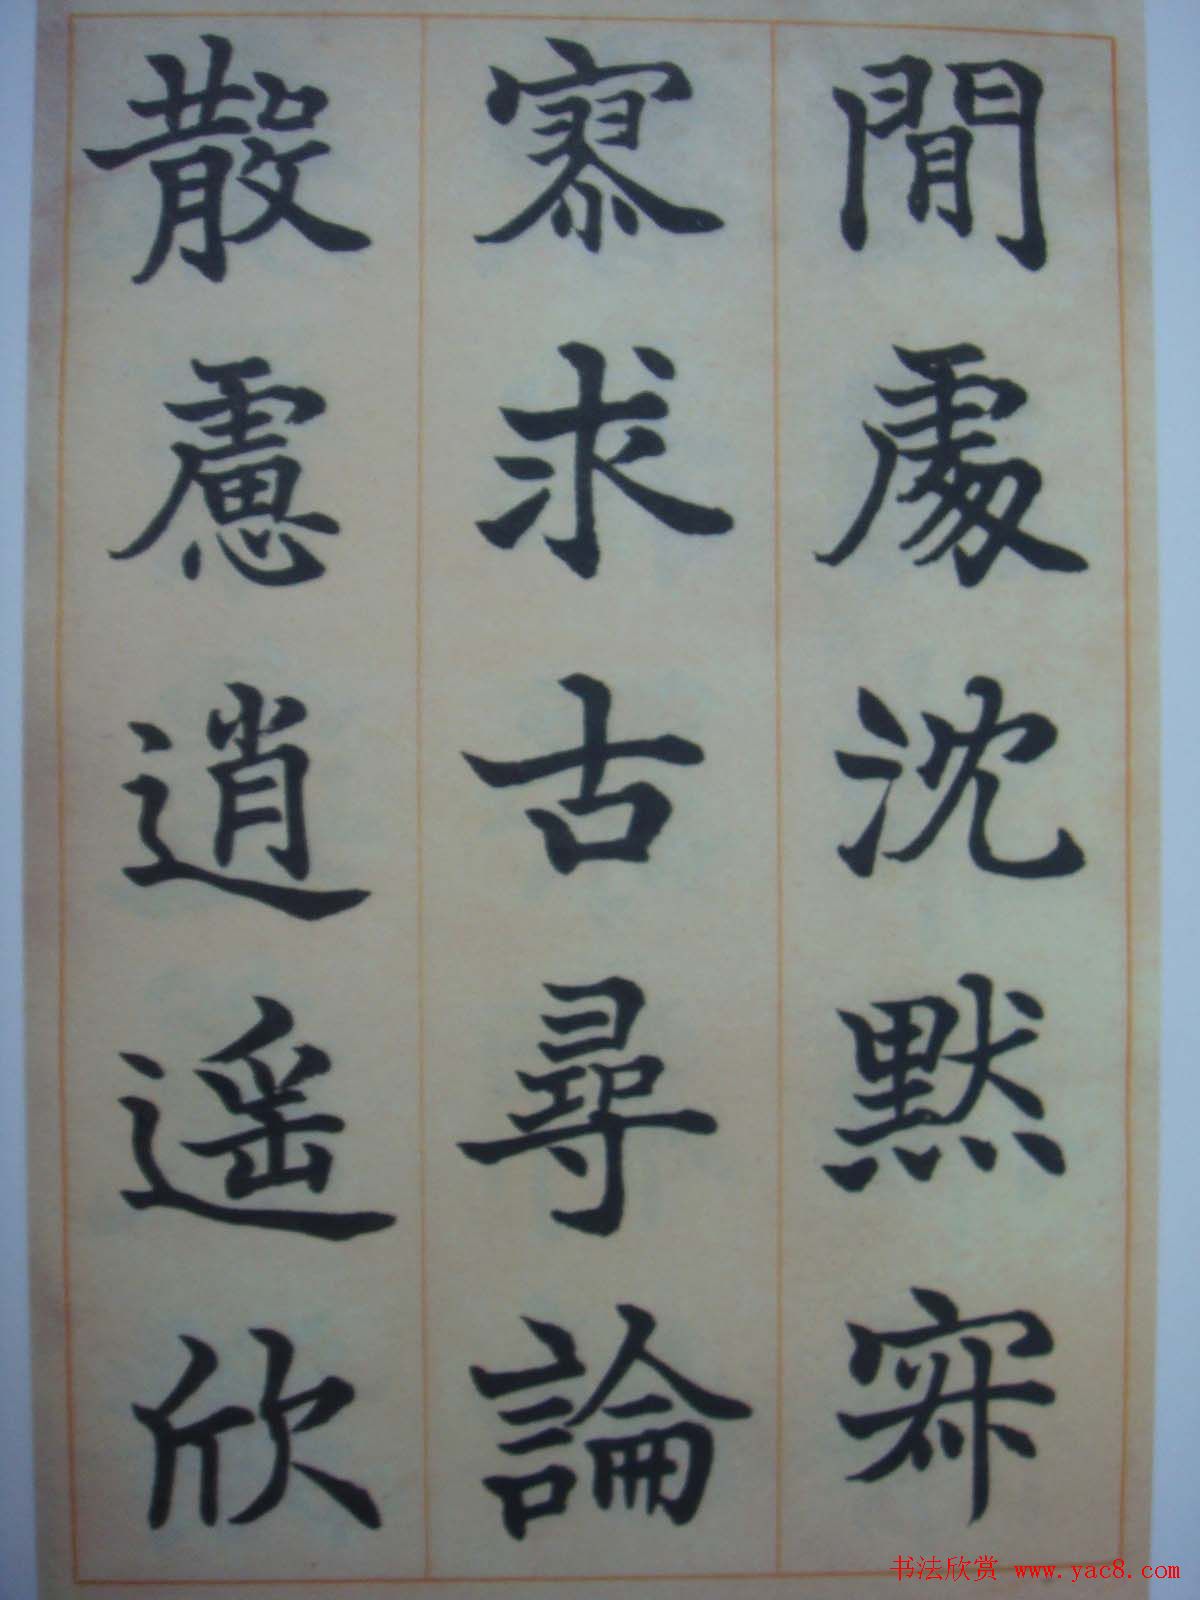 閒處沈默寂
寥求古尋論
散慮逍遥欣
书法欣赏 www.yac8.com